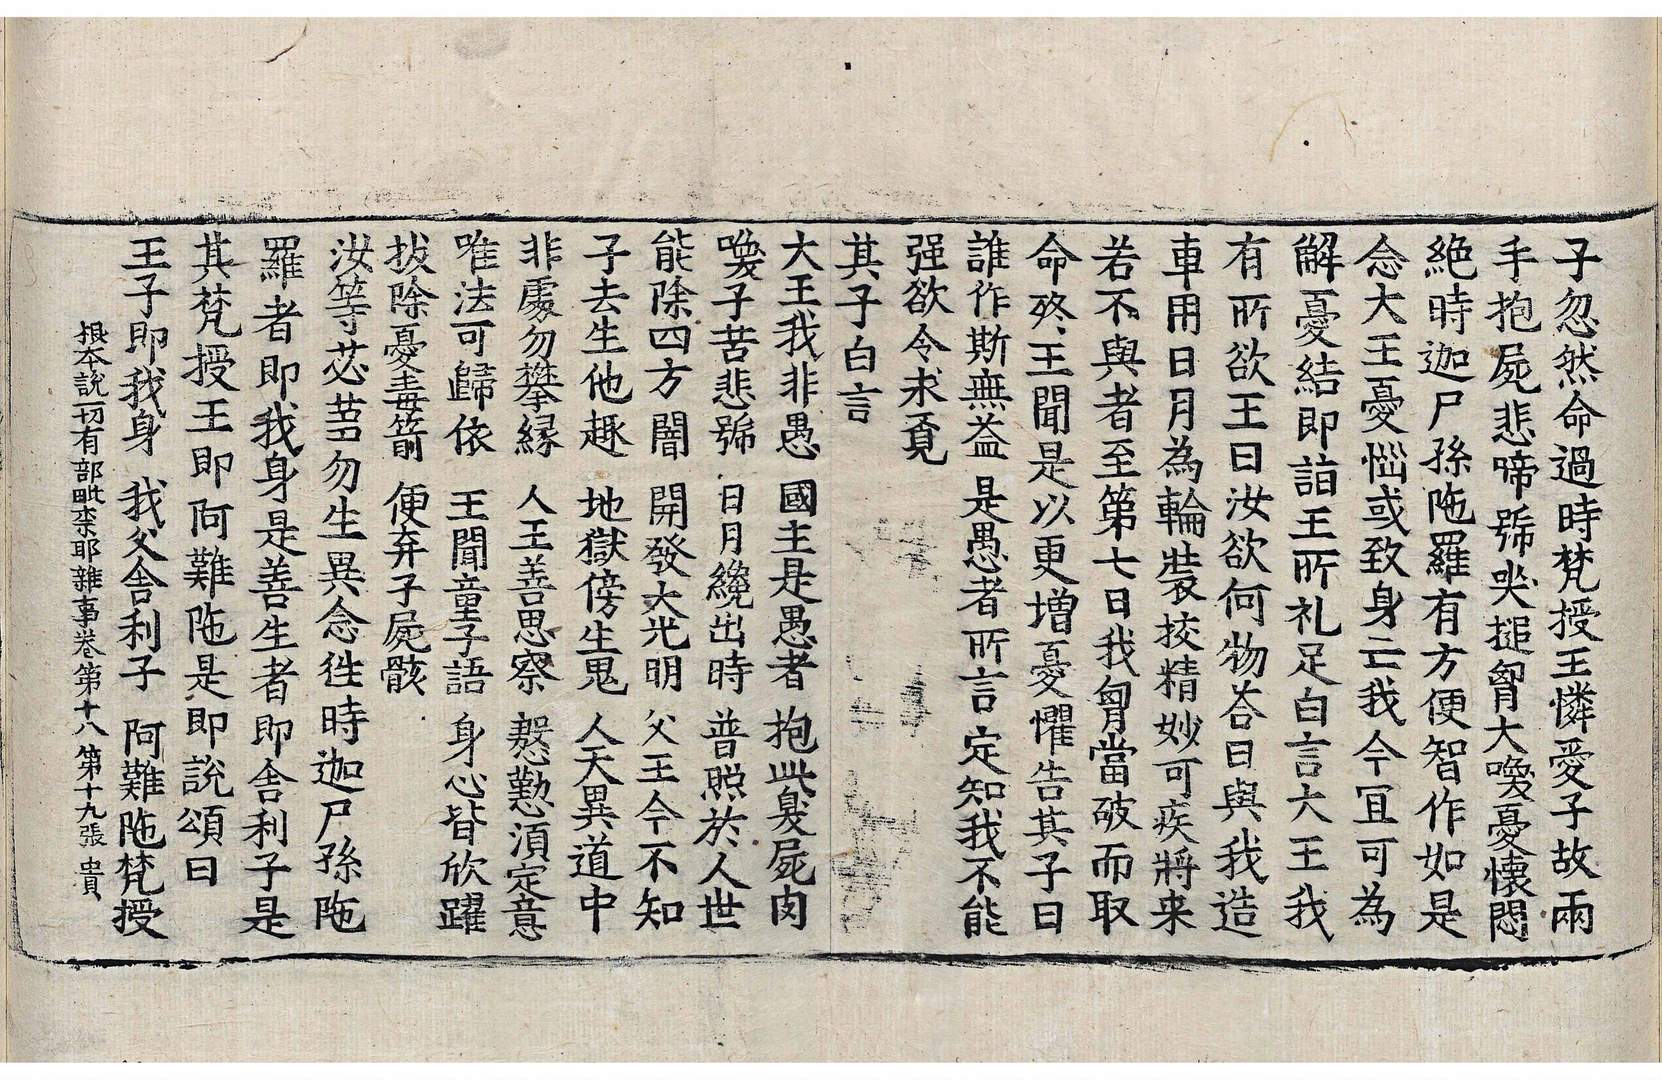 子忽然命過時梵授王憐愛子故兩
手抱屍悲啼號哭搥胷大喚憂懷悶
絕時迦尸孫陁羅有方便智作如是
念大王憂惱或致身亡我今冝可為
解憂結即詣王所礼足白言大王我
有所欲王曰汝欲何物荅曰與我造
車用日月為輪裝挍精妙可疾將来
若不與者至第七日我胷當破而取
命終王聞是以更增憂懼告其子曰
誰作斯無益 是愚者所言 定知我不能
强欲令求覓
其子白言
大王我非愚 國主是愚者 抱此臭屍肉
喚子苦悲號 日月纔出時 普照於人世
能除四方闇 開發大光明 父王今不知
子去生他趣 地獄傍生鬼 人天異道中
非處勿攀緣 人王善思察 慇懃須定意
唯法可歸依 王聞童子語 身心皆欣躍
拔除憂毒箭 便弃子屍骸
汝等苾芻勿生異念徃時迦尸孫陁
羅者即我身是善生者即舍利子是
其梵授王即阿難陁是即說頌曰
王子即我身 我父舍利子 阿難陁梵授
根本說一切有部毗柰耶雜事卷第十八 第十九張 貴